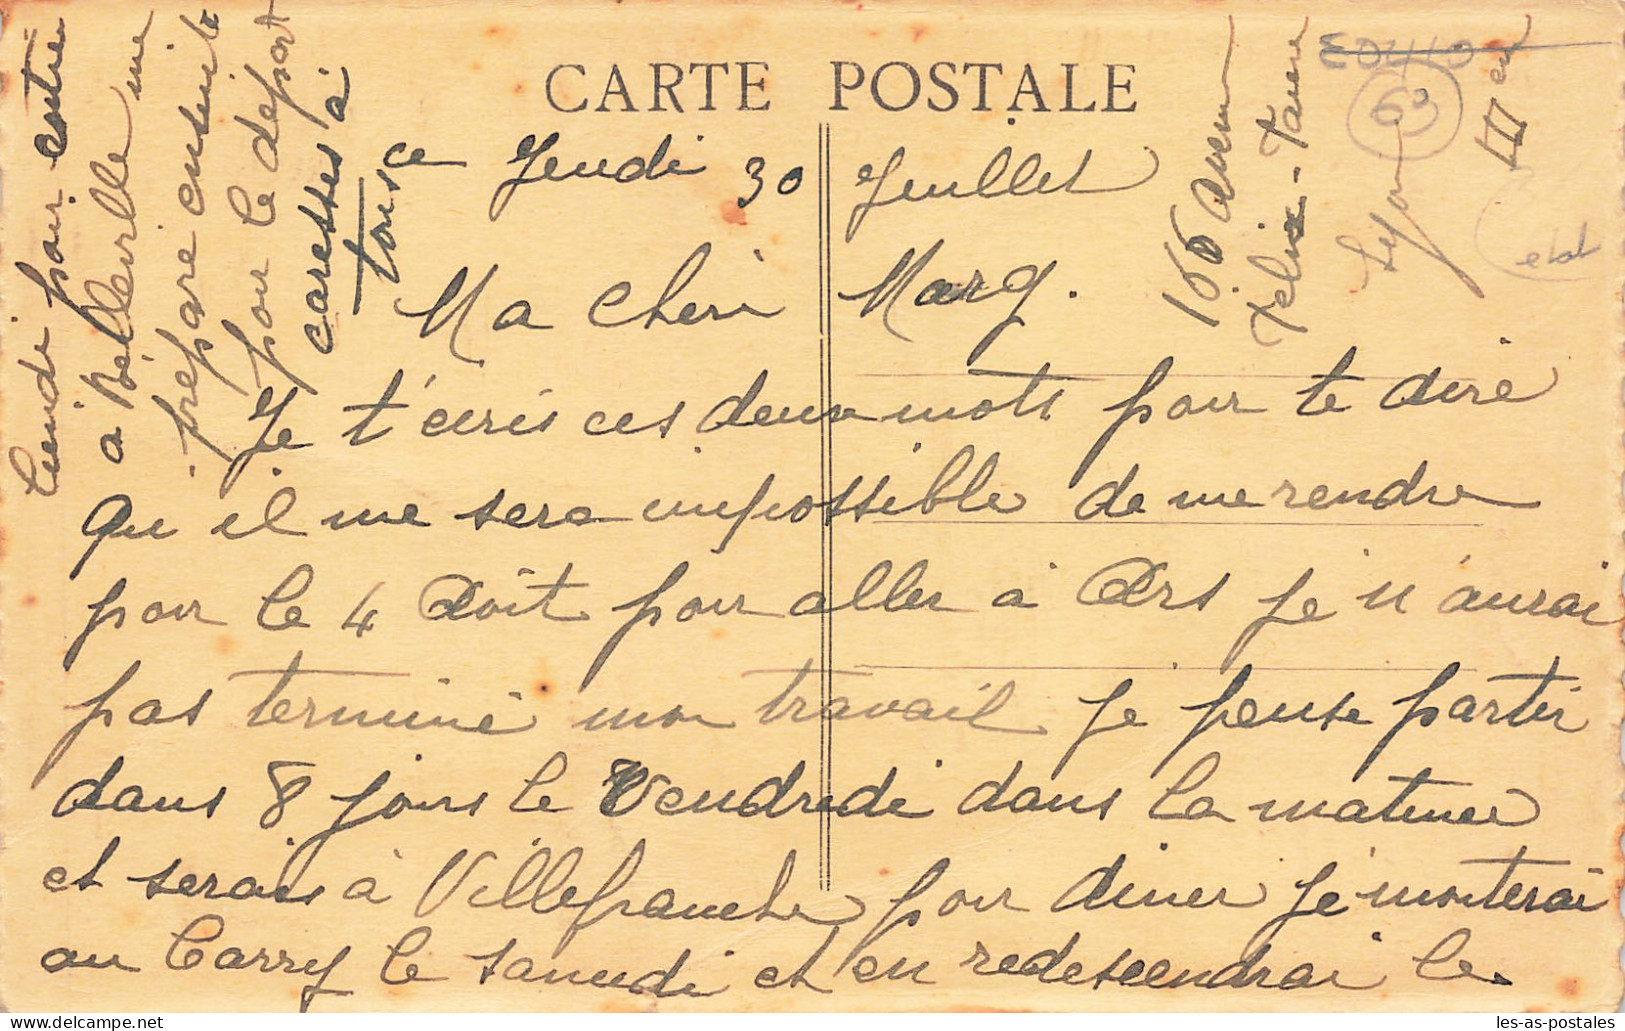 CARTE POSTALE
ce Jeudi 30 Juillet
Ma Cheri Marg.
Je t'écris ces deux mots pour te dire
qu il me sera impossible de me rendre
pour le 4 Août pour aller à Ars je n'aurai
pas terminé mon travail je pense partir
dans 8 jours le Vendredi dans la matinee
et serais à Villefranche pour diner je monterai
au Carry le samedi et en redescendrai le
Lundi pour être
a Belleville me
prépare ensuite
pour le départ
caresses à
tous
166 Avenue
Felix-Faure
Lyon
III em
69
les-as-postales
www.les-as-postales